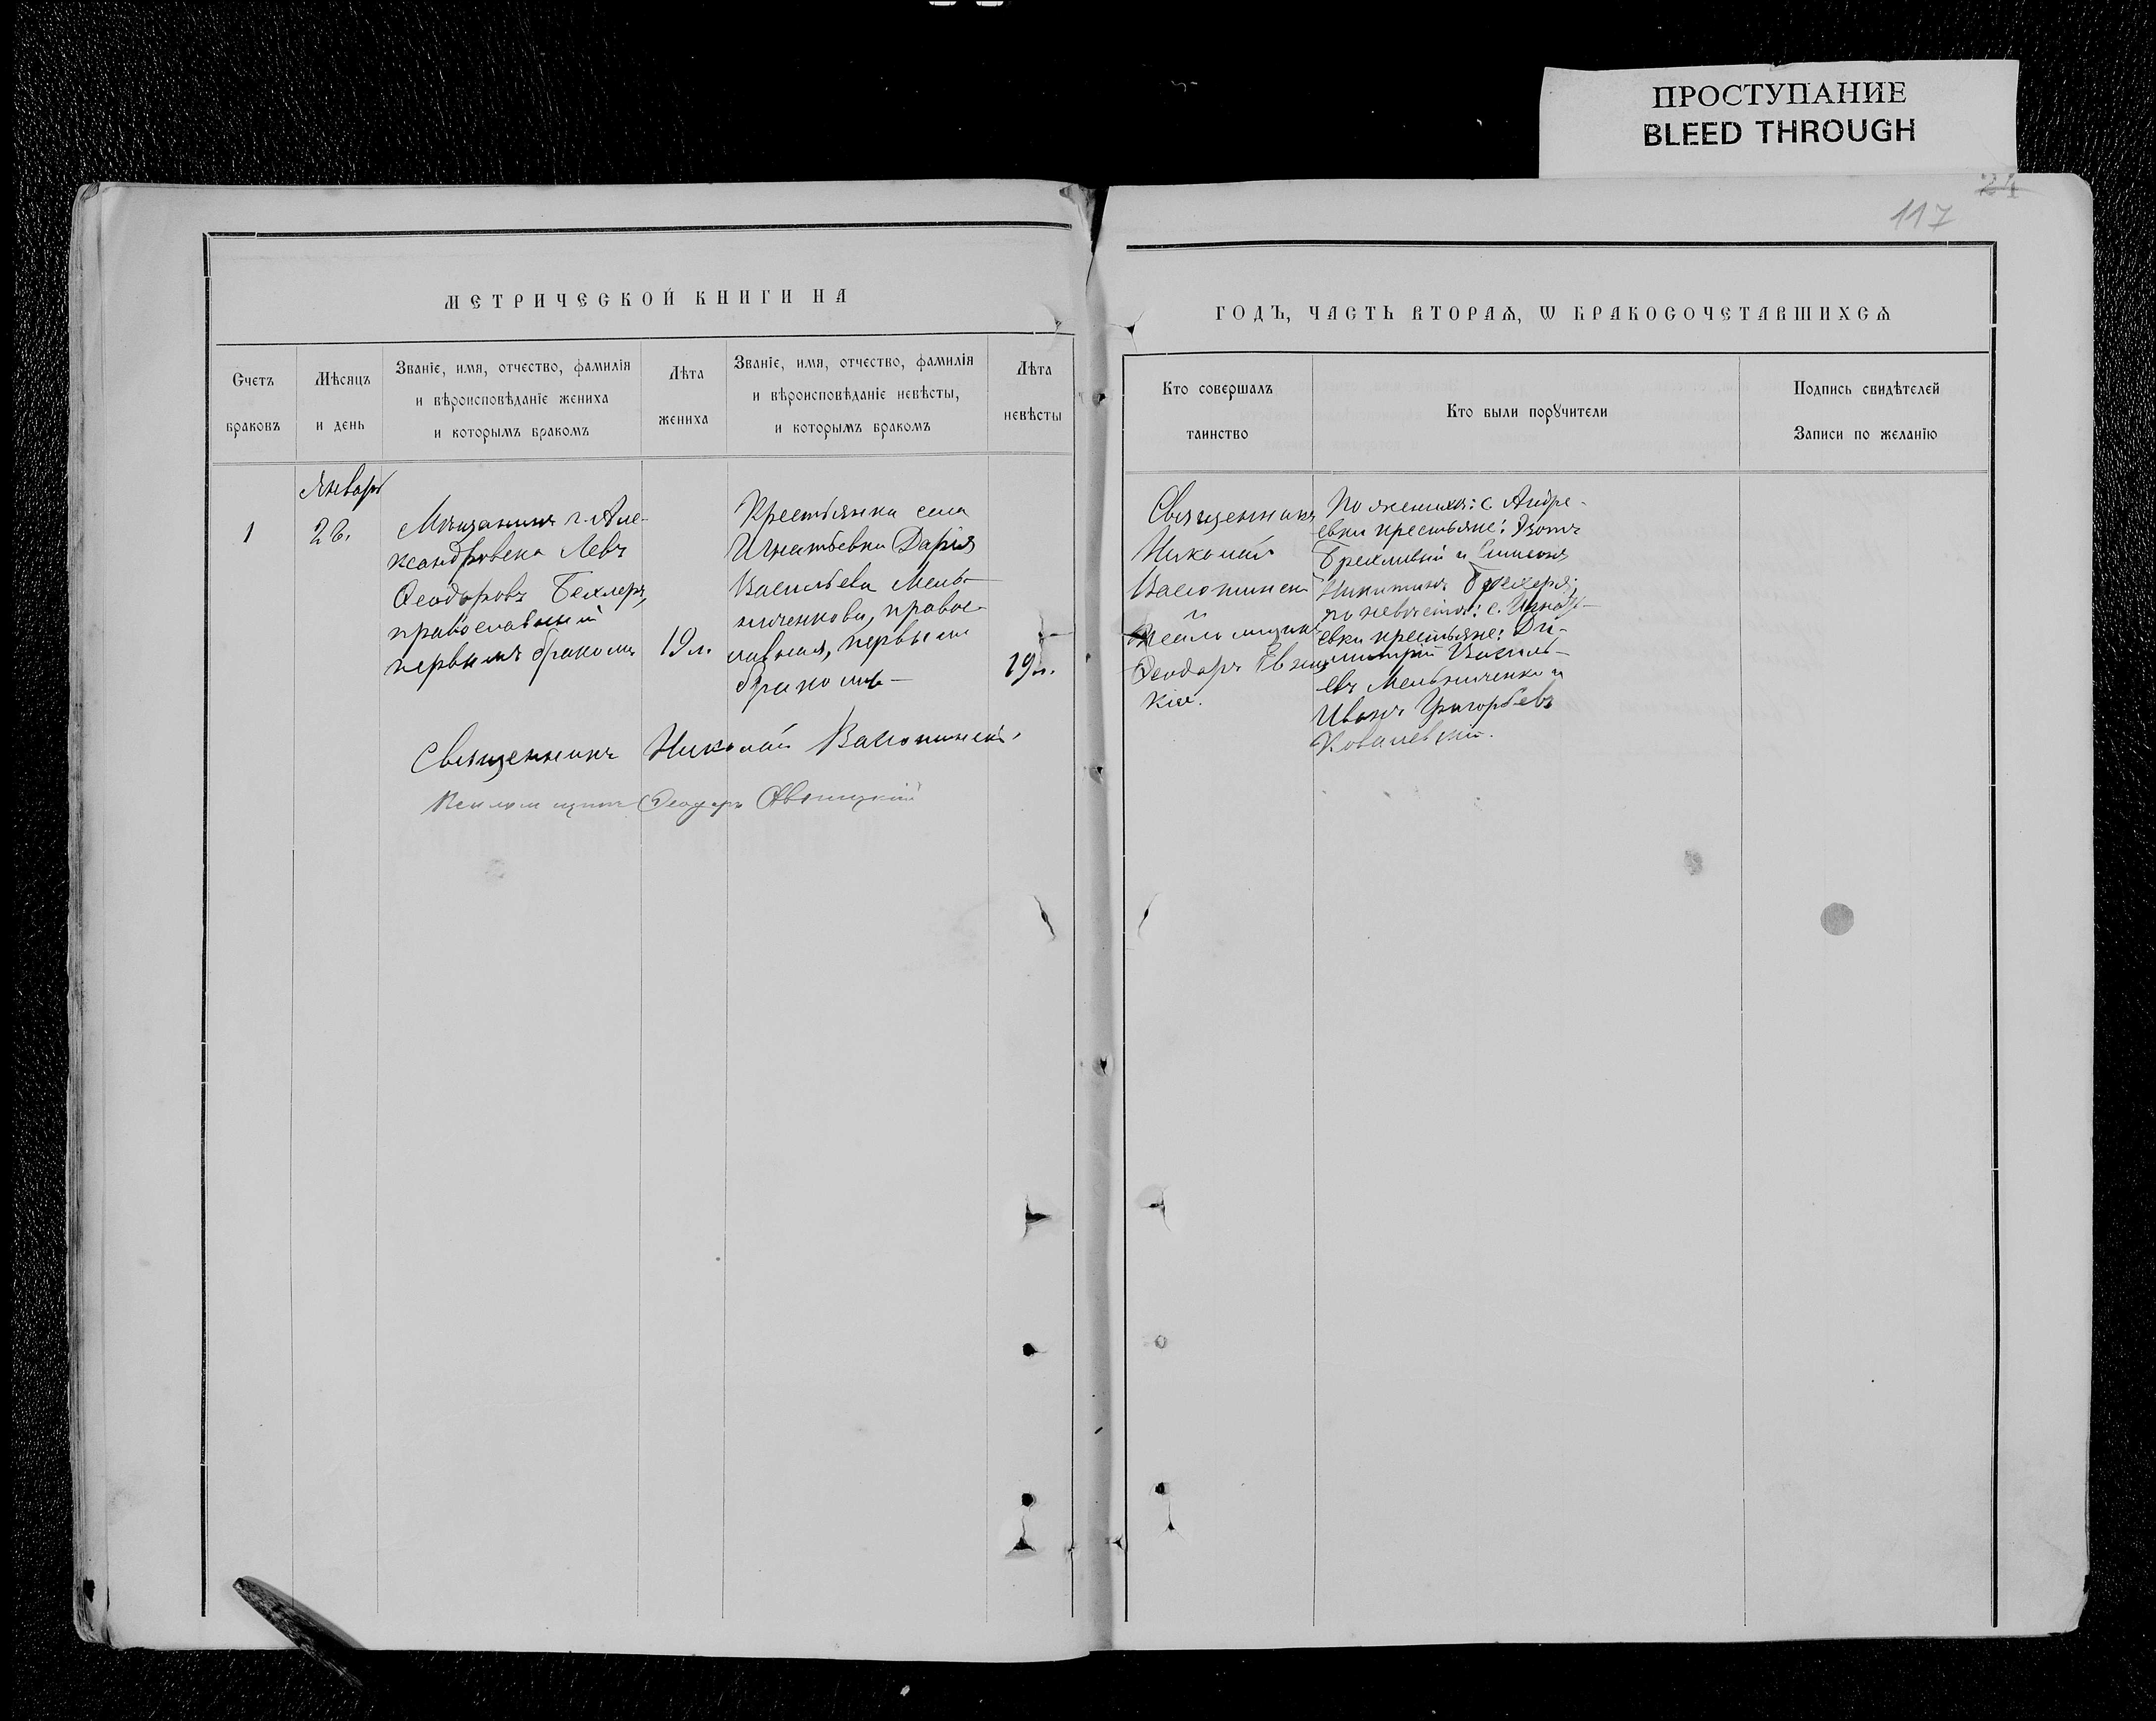 ПРОСТУПАНИЕ
BLEED THROUGH
24
117
МЕТРИЧЕСКОЙ КНИГИ НА
ГОДЪ, ЧАСТЬ ВТОРАѦ, Ѡ БРАКОСОЧЕТАВШИХСѦ
Счетъ
браковъ
Мѣсяцъ
и день
Званіе, имя, отчество, фамилія
и вѣроисповѣданіе жениха
и которымъ бракомъ
Лѣта
жениха
Званіе, имя, отчество, фамилія
и вѣроисповѣданіе невѣсты,
и которымъ бракомъ
Лѣта
невѣсты
Кто совершалъ
таинство
Кто были порꙋчители
Подпись свидѣтелей
Записи по желанію
Январь
1
26.
Мѣщанинъ г. Але-
ксандровска Левъ
Ѳеодоровъ Бехлеръ,
православный
первымъ бракомъ
19 л.
Крестьянка села
Игнатьевки Дарія
Васильева Мель-
ниченкова, правос-
лавная, первымъ
бракомъ
19 л.
Священникъ
Николай
и
Псаломщикъ
Ѳеодоръ
По женихѣ: с. Андре-
евки крестьяне: Изотъ
и Симеонъ
Никитинъ
по невѣстѣ: с. Игнать-
евки крестьяне: Ди-
митрій Василь-
евъ Мельниченко и
Иванъ Григорьевъ
Ковалевскій.
Священникъ Николай
Псаломщикъ Ѳеодоръ